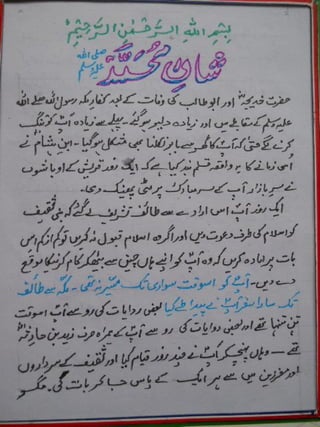 بسم اللہ الرحمٰن الرحیم
شانِ محمدؐ صلی اللہ علیہ وسلم
حضرت خدیجہؓ اور ابو طالب کی وفات کے بعد کفار مکہ رسول اللہ صلی اللہ
علیہ وسلم کے مقابلے میں اور زیادہ دلیر ہو گئے۔ پہلے سے زیادہ آپ کو تنگ
کرنے لگے حتیٰ کہ آپ کا گھر سے باہر نکلنا بھی مشکل ہو گیا۔ ابن ہشام نے
اسی زمانے کا یہ واقعہ قلم بند کیا ہے کہ ایک روز قریش کے اوباشوں
نے سرِ بازار آپ کے سر مبارک پر مٹی پھینک دی۔
ایک روز آپ اس ارادے سے طائف تشریف لے گئے کہ بنی ثقیف
کو اسلام کی طرف دعوت دیں اور اگر وہ اسلام قبول نہ کریں تو کم از کم اس
بات پر آمادہ کریں کہ وہ آپ کو اپنے ہاں چین سے بیٹھ کر کام کرنے کا موقع
دے دیں۔ آپ کو اسوقت سواری تک میسر نہ تھی۔ مکہ سے طائف
تک سارا سفر آپ نے پیدل طے کیا بعض روایات کی رو سے آپ اسوقت
تن تنہا تھے اور بعض روایات کی رو سے آپ کے ہمراہ صرف زید بن حارثہؓ
تھے۔ وہاں پہنچ کر آپ نے چند روز قیام کیا اور ثقیف کے سرداروں
اور معززین میں سے ہر ایک کے پاس جا کر بات کی۔ مگر